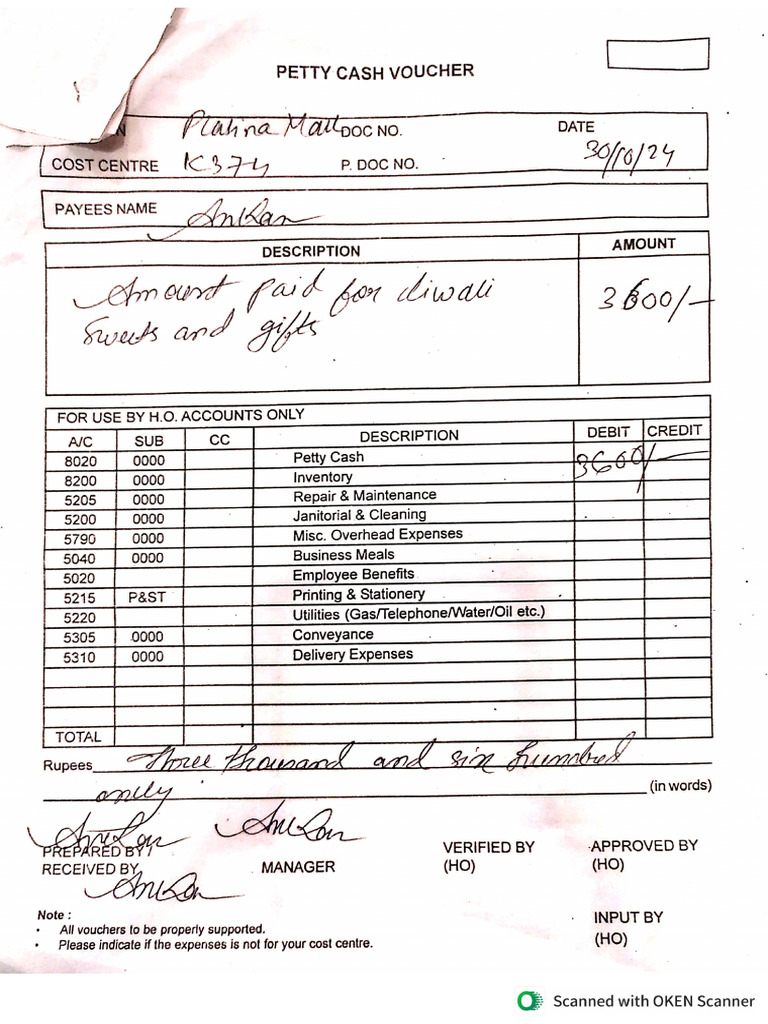 PETTY CASH VOUCHER
N Platina Mall DOC NO. DATE
COST CENTRE K374 P. DOC NO. 30/10/24
PAYEES NAME Ankan
DESCRIPTION AMOUNT
Amount paid for diwali 3600/-
Sweets and gifts
FOR USE BY H.O. ACCOUNTS ONLY
A/C SUB CC DESCRIPTION DEBIT CREDIT
8020 0000 Petty Cash 3600/-
8200 0000 Inventory
5205 0000 Repair & Maintenance
5200 0000 Janitorial & Cleaning
5790 0000 Misc. Overhead Expenses
5040 0000 Business Meals
5020 Employee Benefits
5215 P&ST Printing & Stationery
5220 Utilities (Gas/Telephone/Water/Oil etc.)
5305 0000 Conveyance
5310 0000 Delivery Expenses
TOTAL
Rupees Three thousand and six hundred
only (in words)
Ankan Ankan
PREPARED BY / VERIFIED BY APPROVED BY
RECEIVED BY MANAGER (HO) (HO)
Ankan
Note : INPUT BY
• All vouchers to be properly supported. (HO)
• Please indicate if the expenses is not for your cost centre.
Scanned with OKEN Scanner